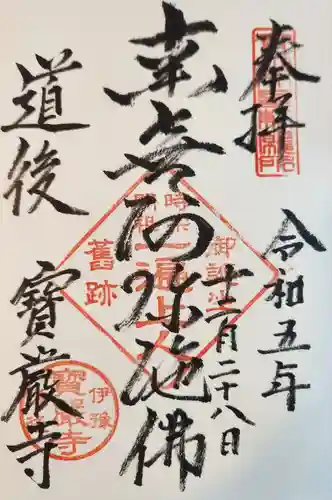 奉拝
令和五年
十二月二十八日
南無阿弥陀佛
道後
寳厳寺
時宗
開祖
一遍上人
御誕生
舊跡
伊豫
寳嚴寺